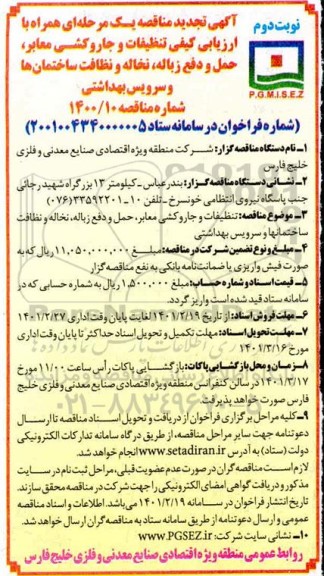 نوبت دوم
P.G.M.I.S.E.Z
آگهی تجدید مناقصه یک مرحله‌ای همراه با
ارزیابی کیفی تنظیفات و جاروکشی معابر،
حمل و دفع زباله، نخاله و نظافت ساختمان‌ها
و سرویس بهداشتی
شماره مناقصه ۱۴۰۰/۱۰
(شماره فراخوان در سامانه ستاد ۲۰۰۱۰۰۴۳۴۰۰۰۰۰۰۵)
۱ـ نام دستگاه مناقصه گزار: شرکت منطقه ویژه اقتصادی صنایع معدنی و فلزی
خلیج فارس
۲ـ نشانی دستگاه مناقصه گزار: بندرعباس ـ کیلومتر ۱۳ بزرگراه شهید رجائی
جنب پاسگاه نیروی انتظامی خونسرخ ـ تلفن ۱۰ـ۳۳۵۹۲۲۰۱(۰۷۶)
۳ـ موضوع مناقصه: تنظیفات و جاروکشی معابر، حمل و دفع زباله، نخاله و نظافت
ساختمانها و سرویس بهداشتی
۴ـ مبلغ و نوع تضمین شرکت در مناقصه: مبلغ ۱۱,۰۵۰,۰۰۰,۰۰۰ ریال که به
صورت فیش واریزی یا ضمانتنامه بانکی به نفع مناقصه گزار
۵ـ قیمت اسناد و شماره حساب: مبلغ ۱,۵۰۰,۰۰۰ ریال به شماره حسابی که در
سامانه ستاد قید شده است واریز گردد.
۶ـ مهلت فروش اسناد: از تاریخ ۱۴۰۱/۲/۱۹ لغایت پایان وقت اداری ۱۴۰۱/۲/۲۷
۷ـ مهلت تحویل اسناد: مهلت تکمیل و تحویل اسناد حداکثر تا پایان وقت اداری
مورخ ۱۴۰۱/۳/۱۶
۸ـ زمان و محل بازگشایی پاکات: بازگشایی پاکات رأس ساعت ۱۱/۰۰ مورخ
۱۴۰۱/۳/۱۷ در سالن کنفرانس منطقه ویژه اقتصادی صنایع معدنی و فلزی خلیج
فارس صورت خواهد پذیرفت.
۹ـ کلیه مراحل برگزاری فراخوان از دریافت و تحویل اسناد مناقصه تا ارسال
دعوتنامه جهت سایر مراحل مناقصه، از طریق درگاه سامانه تدارکات الکترونیکی
دولت (ستاد) به آدرس www.setadiran.ir انجام خواهد شد.
لازم است مناقصه گران در صورت عدم عضویت قبلی، مراحل ثبت نام در سایت
مذکور و دریافت گواهی امضای الکترونیکی را جهت شرکت در مناقصه محقق سازند.
تاریخ انتشار فراخوان در سامانه ۱۴۰۱/۲/۱۹ می‌باشد. اطلاعات و اسناد مناقصه
عمومی و ارسال دعوتنامه از طریق سامانه ستاد به مناقصه گران ارسال خواهد شد.
۱۰ـ نشانی سایت شرکت: www.PGSEZ.ir
روابط عمومی منطقه ویژه اقتصادی صنایع معدنی و فلزی خلیج فارس